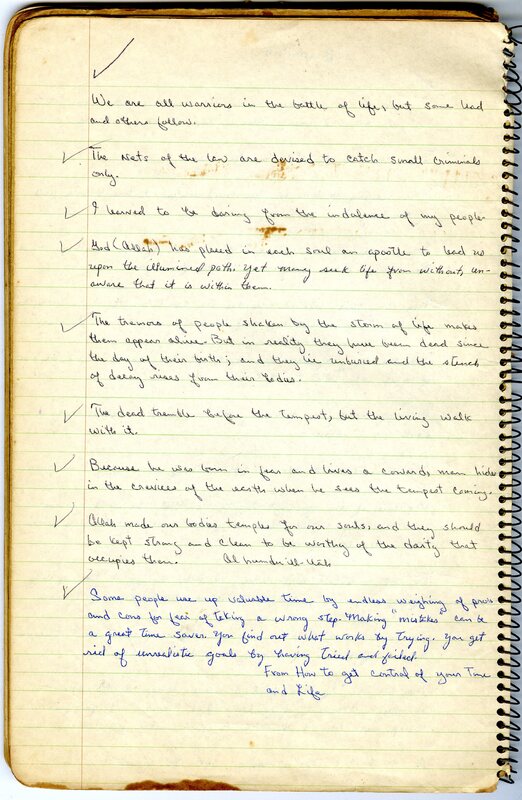 We are all warriors in the battle of life, but some lead
and others follow.
The nets of the law are devised to catch small criminals
only.
I learned to be daring from the indulence of my people.
God (Allah) has placed in each soul an apostle to lead us
upon the illumined path. Yet many seek life from without, un-
aware that it is within them.
The tremors of people shaken by the storm of life makes
them appear alive. But in reality they have been dead since
the day of their birth; and they lie unburied and the stench
of decay rises from their bodies.
The dead tremble before the tempest, but the living walk
with it.
Because he was born in fear and lives a coward, man hides
in the crevices of the earth when he sees the tempest coming.
Allah made our bodies temples for our souls, and they should
be kept strong and clean to be worthy of the diety that
occupies them.
Some people use up valuable time by endless weighing of pros
and cons for fear of taking a wrong step. Making "mistakes" can be
a great time saver. You find out what works by trying. You get
rid of unrealistic goals by having tried and failed.
From How to get control of your Time
and Life